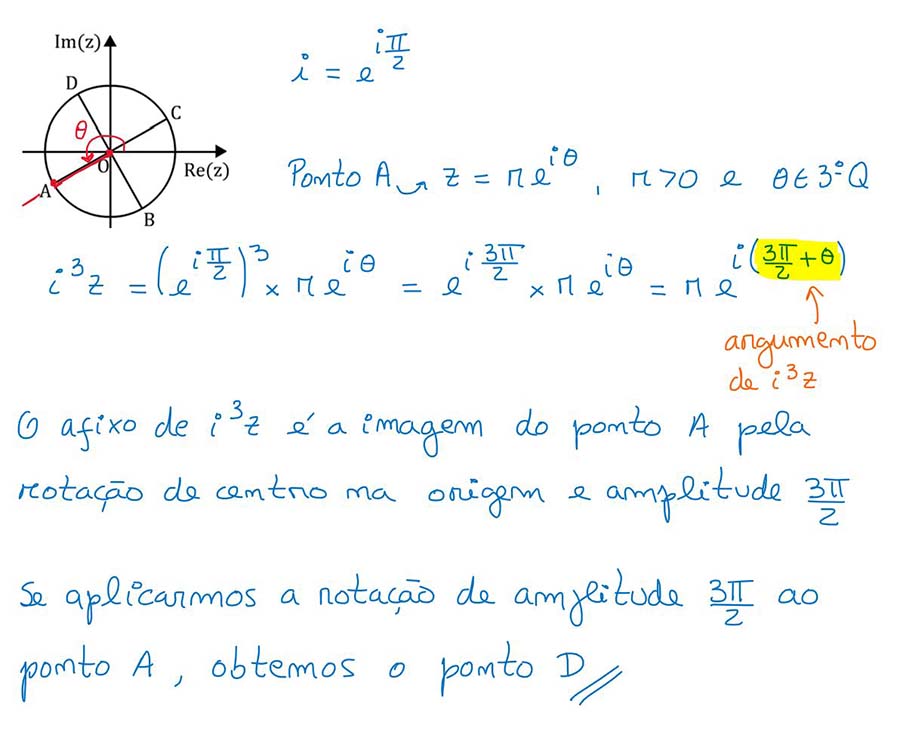 Im(z)
i = e^{iπ/2}
D
C
θ
O
Re(z)
A
B
Ponto A ⤳ z = re^{iθ}, r>0 e θ∈3ºQ
i³z = (e^{iπ/2})³ × re^{iθ} = e^{i3π/2} × re^{iθ} = re^{i(3π/2+θ)}
argumento
de i³z
O afixo de i³z é a imagem do ponto A pela
rotação de centro na origem e amplitude 3π/2
Se aplicarmos a rotação de amplitude 3π/2 ao
ponto A, obtemos o ponto D//